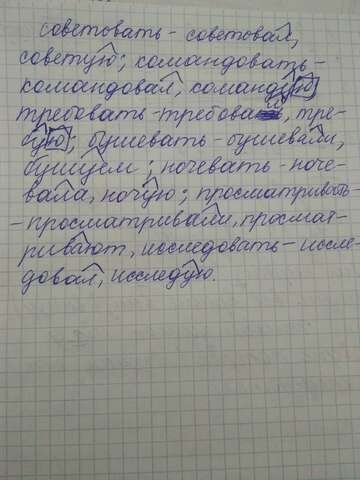 советовать - советовал,
советую; командовать -
командовал, командую
требовать - требовал, тре-
бую; бушевать - бушевали,
бушуем; ночевать - ноче-
вала, ночую; просматривать -
- просматривали, просмат-
ривают, исследовать - иссле-
довал, исследую.